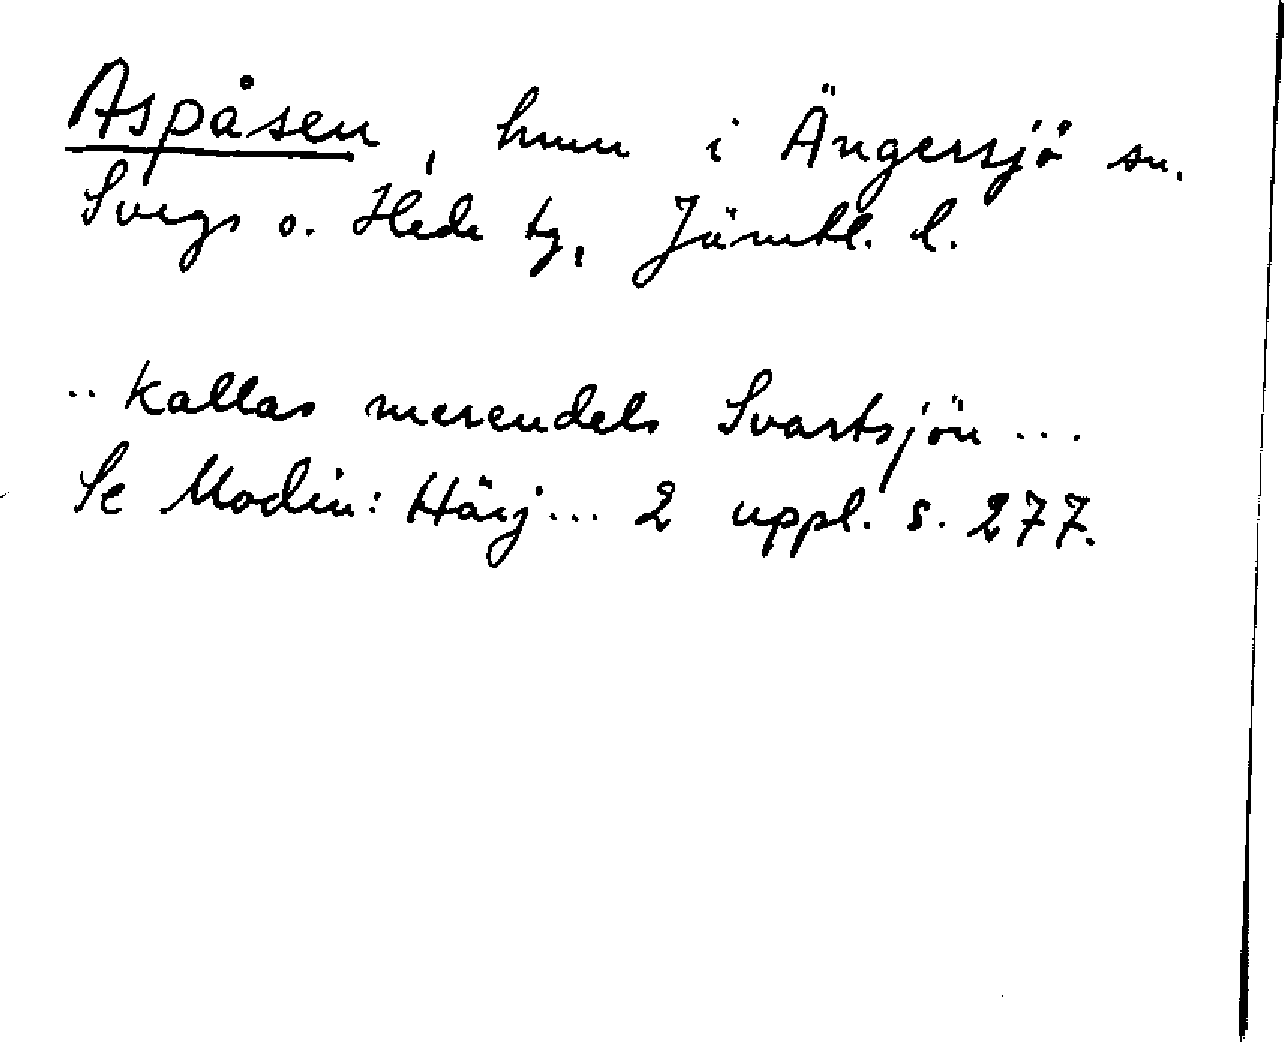 Aspåsen, hmn i Ängersjö sn.
Svegs o. Hede tg, Jämtl. l.
.. kallas merendels Svartsjön ...
Se Modin: Härj... 2 uppl. s. 277.